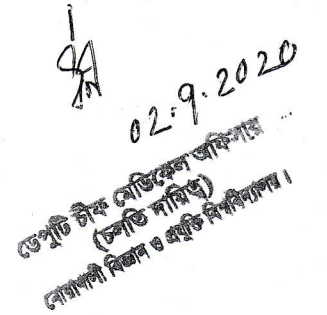 02.9.2020
ডেপুটি চীফ মেডিকেল অফিসার
(চলতি দায়িত্ব)
নোয়াখালী বিজ্ঞান ও প্রযুক্তি বিশ্ববিদ্যালয়।